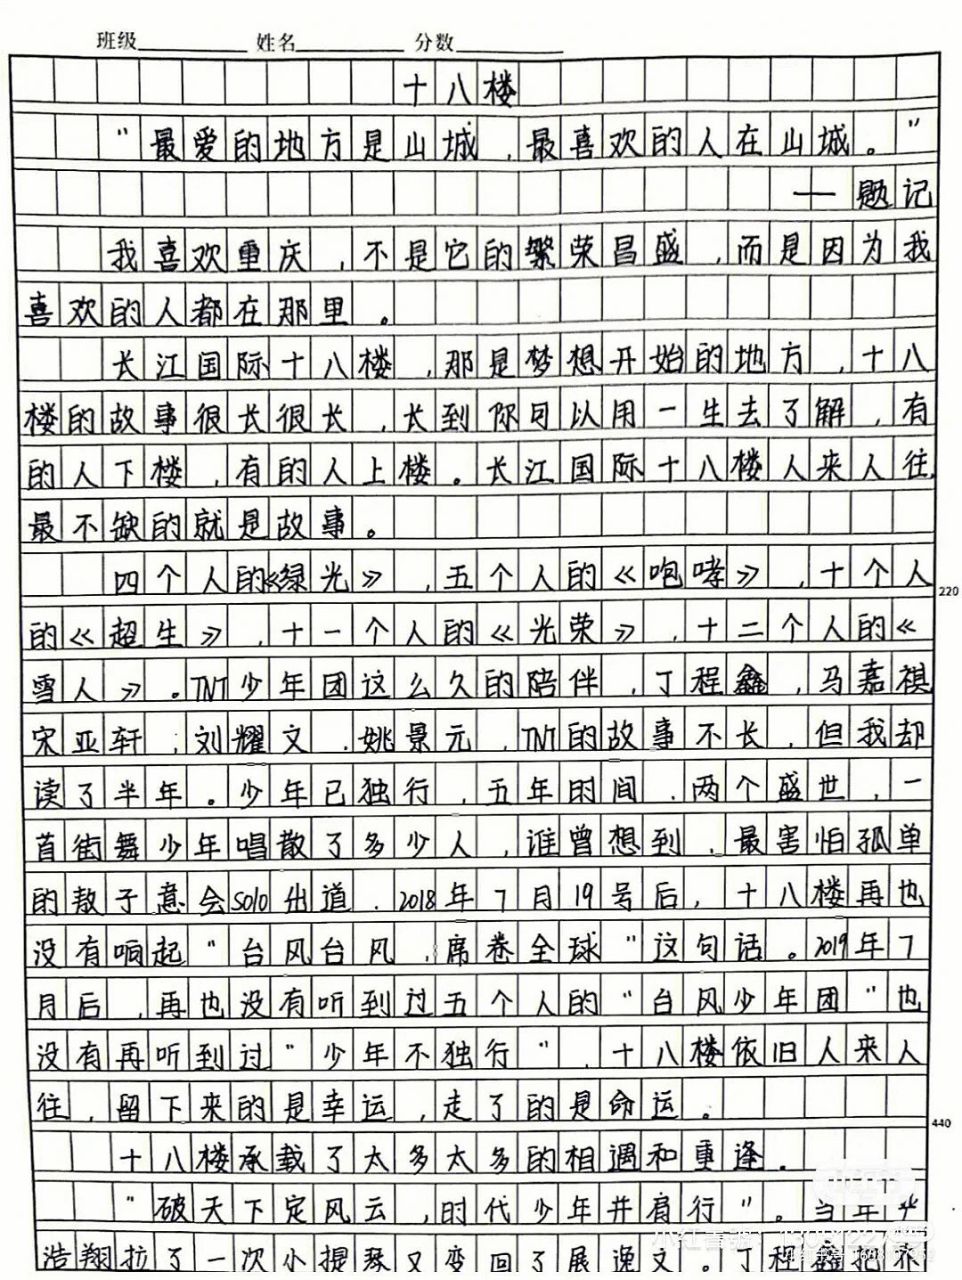 班级 姓名 分数
十八楼
“最爱的地方是山城，最喜欢的人在山城。”
——题记
我喜欢重庆，不是它的繁荣昌盛，而是因为我
喜欢的人都在那里。
长江国际十八楼，那是梦想开始的地方，十八
楼的故事很长很长，长到你可以用一生去了解，有
的人下楼，有的人上楼。长江国际十八楼人来人往，
最不缺的就是故事。
四个人的《绿光》，五个人的《咆哮》，十个人
220
的《超生》，十一个人的《光荣》，十二个人的《
雪人》。TNT少年团这么久的陪伴，丁程鑫，马嘉祺
宋亚轩，刘耀文，姚景元，TNT的故事不长，但我却
读了半年。少年已独行，五年时间，两个盛世，一
首街舞少年唱散了多少人，谁曾想到，最害怕孤单
的敖子意会solo出道，2018年7月19号后，十八楼再也
没有响起“台风台风，席卷全球”这句话。2019年7
月后，再也没有听到过五个人的“台风少年团”也
没有再听到过“少年不独行”，十八楼依旧人来人
往，留下来的是幸运，走了的是命运。
440
十八楼承载了太多太多的相遇和重逢。
“破天下定风云，时代少年并肩行”。当年
浩翔拉了一次小提琴又变回了展逸文。丁程鑫把
小红书